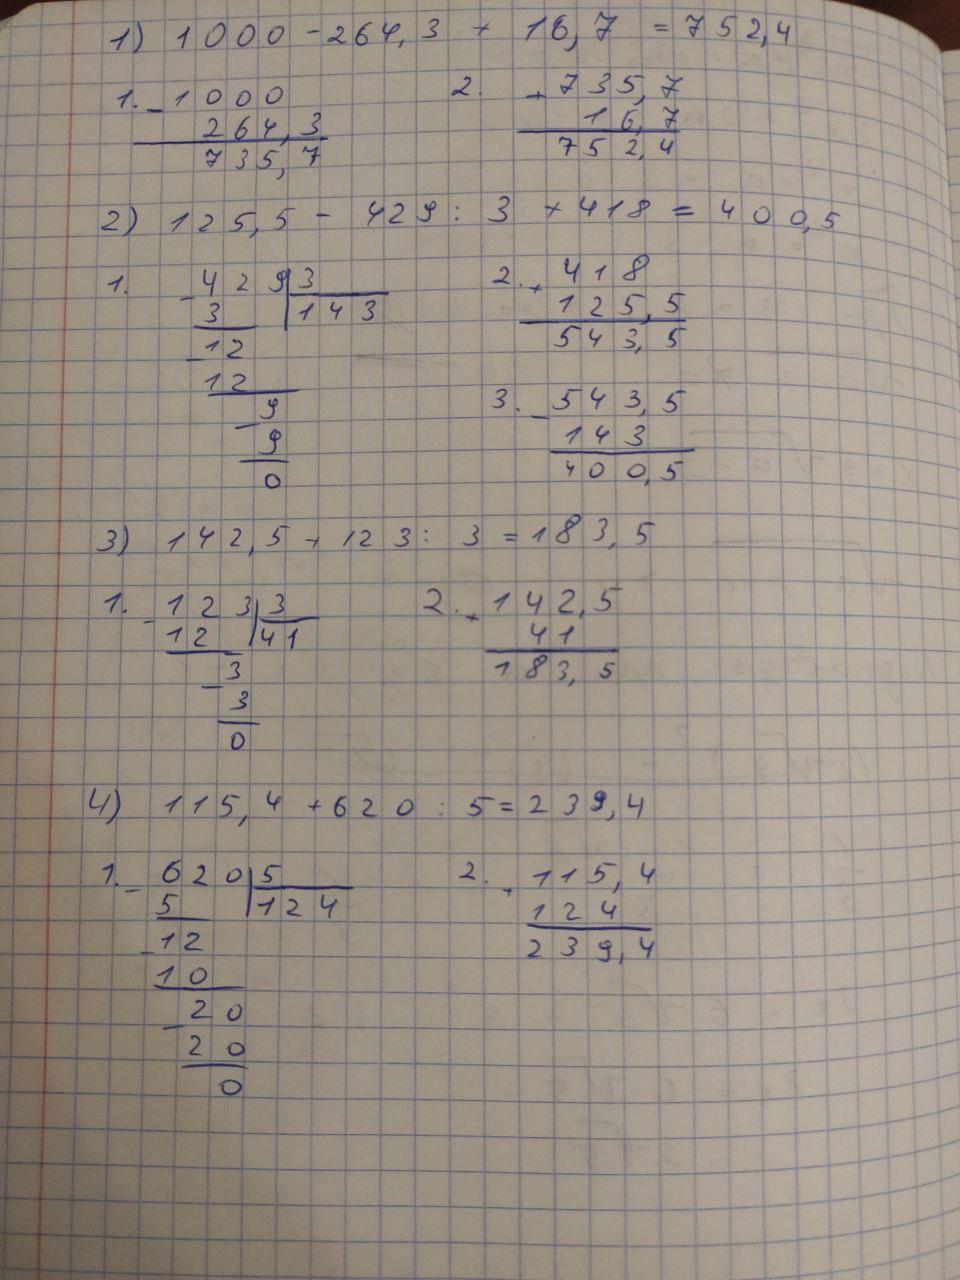 1) 1000 - 264,3 + 16,7 = 752,4
1. - 1000 2. + 735,7
264,3 16,7
735,7 752,4
2) 125,5 - 429 : 3 + 418 = 400,5
1. - 429 3 2. + 418
3 143 125,5
- 12 543,5
12 3. - 543,5
- 9 143
9 400,5
0
3) 142,5 + 123 : 3 = 183,5
1. - 123 3 2. + 142,5
12 41 41
- 3 183,5
3
0
4) 115,4 + 620 : 5 = 239,4
1. - 620 5 2. + 115,4
5 124 124
- 12 239,4
10
- 20
20
0